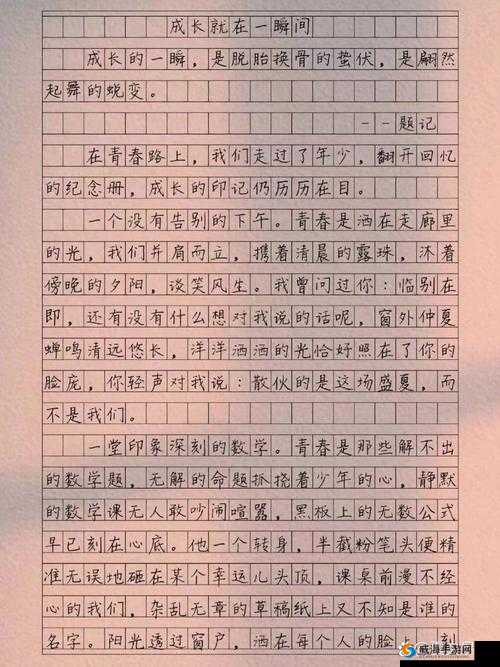 成长就在一瞬间
成长的一瞬，是脱胎换骨的蛰伏，是翩然
起舞的蜕变。
--题记
在青春路上，我们走过了年少，翻开回忆
的纪念册，成长的印记仍历历在目。
一个没有告别的下午。青春是洒在走廊里
的光，我们并肩而立，携着清晨的露珠，沐着
傍晚的夕阳，谈笑风生。我曾问过你：临别在
即，还有没有什么想对我说的话呢，窗外仲夏
蝉鸣清远悠长，洋洋洒洒的光恰好照在了你的
脸庞，你轻声对我说：散伙的是这场盛夏，而
不是我们。
一堂印象深刻的数学。青春是那些解不出
的数学题，无解的命题抓挠着少年的心，静默
的数学课无人敢吵闹喧嚣，黑板上的无数公式
早已刻在心底。他一个转身，半截粉笔头便精
准无误地砸在某个幸运儿头顶，课桌前漫不经
心的我们，杂乱无章的草稿纸上又不知是谁的
名字。阳光透过窗户，洒在每个人的脸上，刻
威海手游网